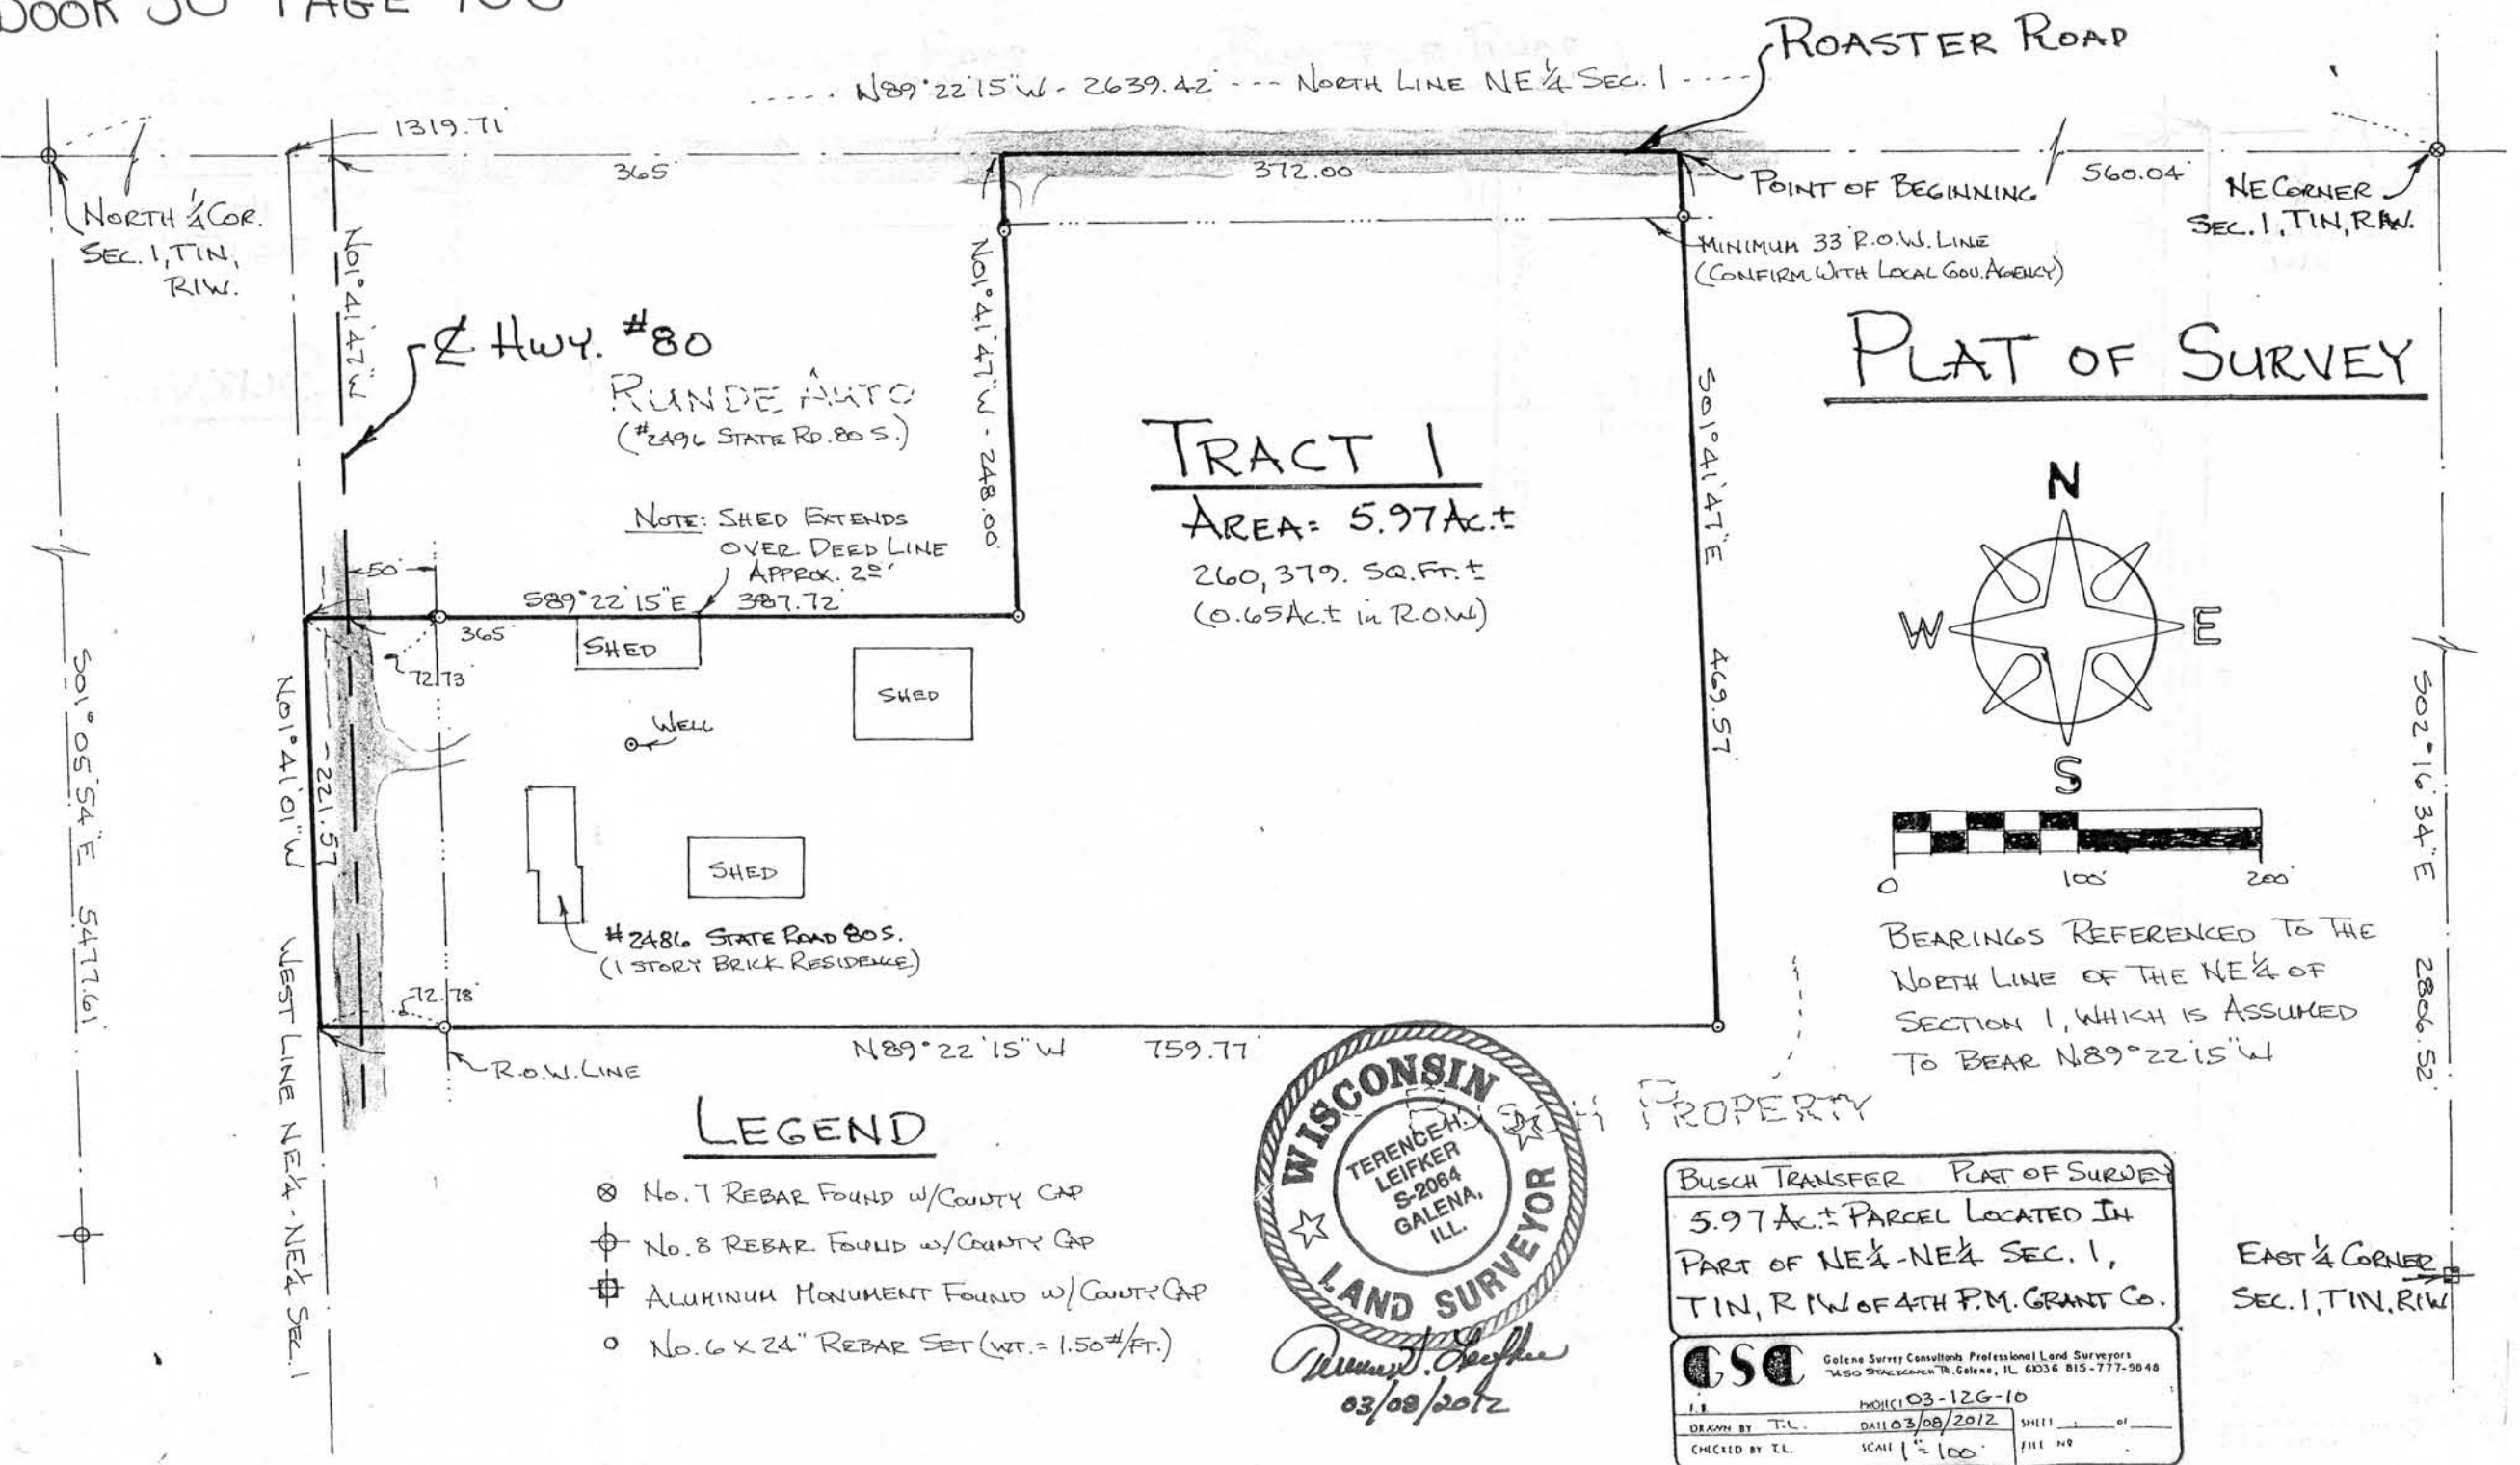 PAGE
ROASTER ROAD
N89°22'15"W - 2639.42' --- NORTH LINE NE¼ SEC. 1
1319.71'
365'
372.00'
POINT OF BEGINNING
560.04'
NORTH ¼ COR.
SEC. 1, T1N,
R1W.
NE CORNER
SEC. 1, T1N, R1W.
MINIMUM 33' R.O.W. LINE
(CONFIRM WITH LOCAL GOV. AGENCY)
N01°41'47"W
℄ HWY. #80
RUNDE AUTO
(#2496 STATE RD. 80 S.)
N01°41'47"W - 248.00'
PLAT OF SURVEY
TRACT 1
AREA = 5.97 AC.±
260,379. SQ.FT.±
(0.65 AC.± in R.O.W.)
S01°41'47"E 469.57'
NOTE: SHED EXTENDS
OVER DEED LINE
APPROX. 2.0'
50'
S89°22'15"E 387.72'
365'
72.73'
SHED
SHED
WELL
SHED
#2486 STATE ROAD 80 S.
(1 STORY BRICK RESIDENCE)
N01°41'01"W - 221.57'
WEST LINE NE¼-NE¼ SEC. 1
S01°05'54"E 5477.61'
72.78'
R.O.W. LINE
N89°22'15"W 759.77'
N
W E
S
0 100' 200'
BEARINGS REFERENCED TO THE
NORTH LINE OF THE NE¼ OF
SECTION 1, WHICH IS ASSUMED
TO BEAR N89°22'15"W
S02°16'34"E 2806.52'
LEGEND
No. 7 REBAR FOUND W/COUNTY CAP
No. 8 REBAR FOUND W/COUNTY CAP
ALUMINUM MONUMENT FOUND W/COUNTY CAP
No. 6 X 24" REBAR SET (WT. = 1.50#/FT.)
WISCONSIN
TERENCE H.
LEIFKER
S-2064
GALENA,
ILL.
LAND SURVEYOR
03/08/2012
PROPERTY
BUSCH TRANSFER PLAT OF SURVEY
5.97 AC.± PARCEL LOCATED IN
PART OF NE¼-NE¼ SEC. 1,
T1N, R1W OF 4TH P.M. GRANT CO.
EAST ¼ CORNER
SEC. 1, T1N, R1W
GSC
Galena Survey Consultants Professional Land Surveyors
Galena, IL 61036 815-777-9048
03-12G-10
DRAWN BY T.L. DATE 03/08/2012 SHEET of
CHECKED BY T.L. SCALE 1"=100' FILE NO